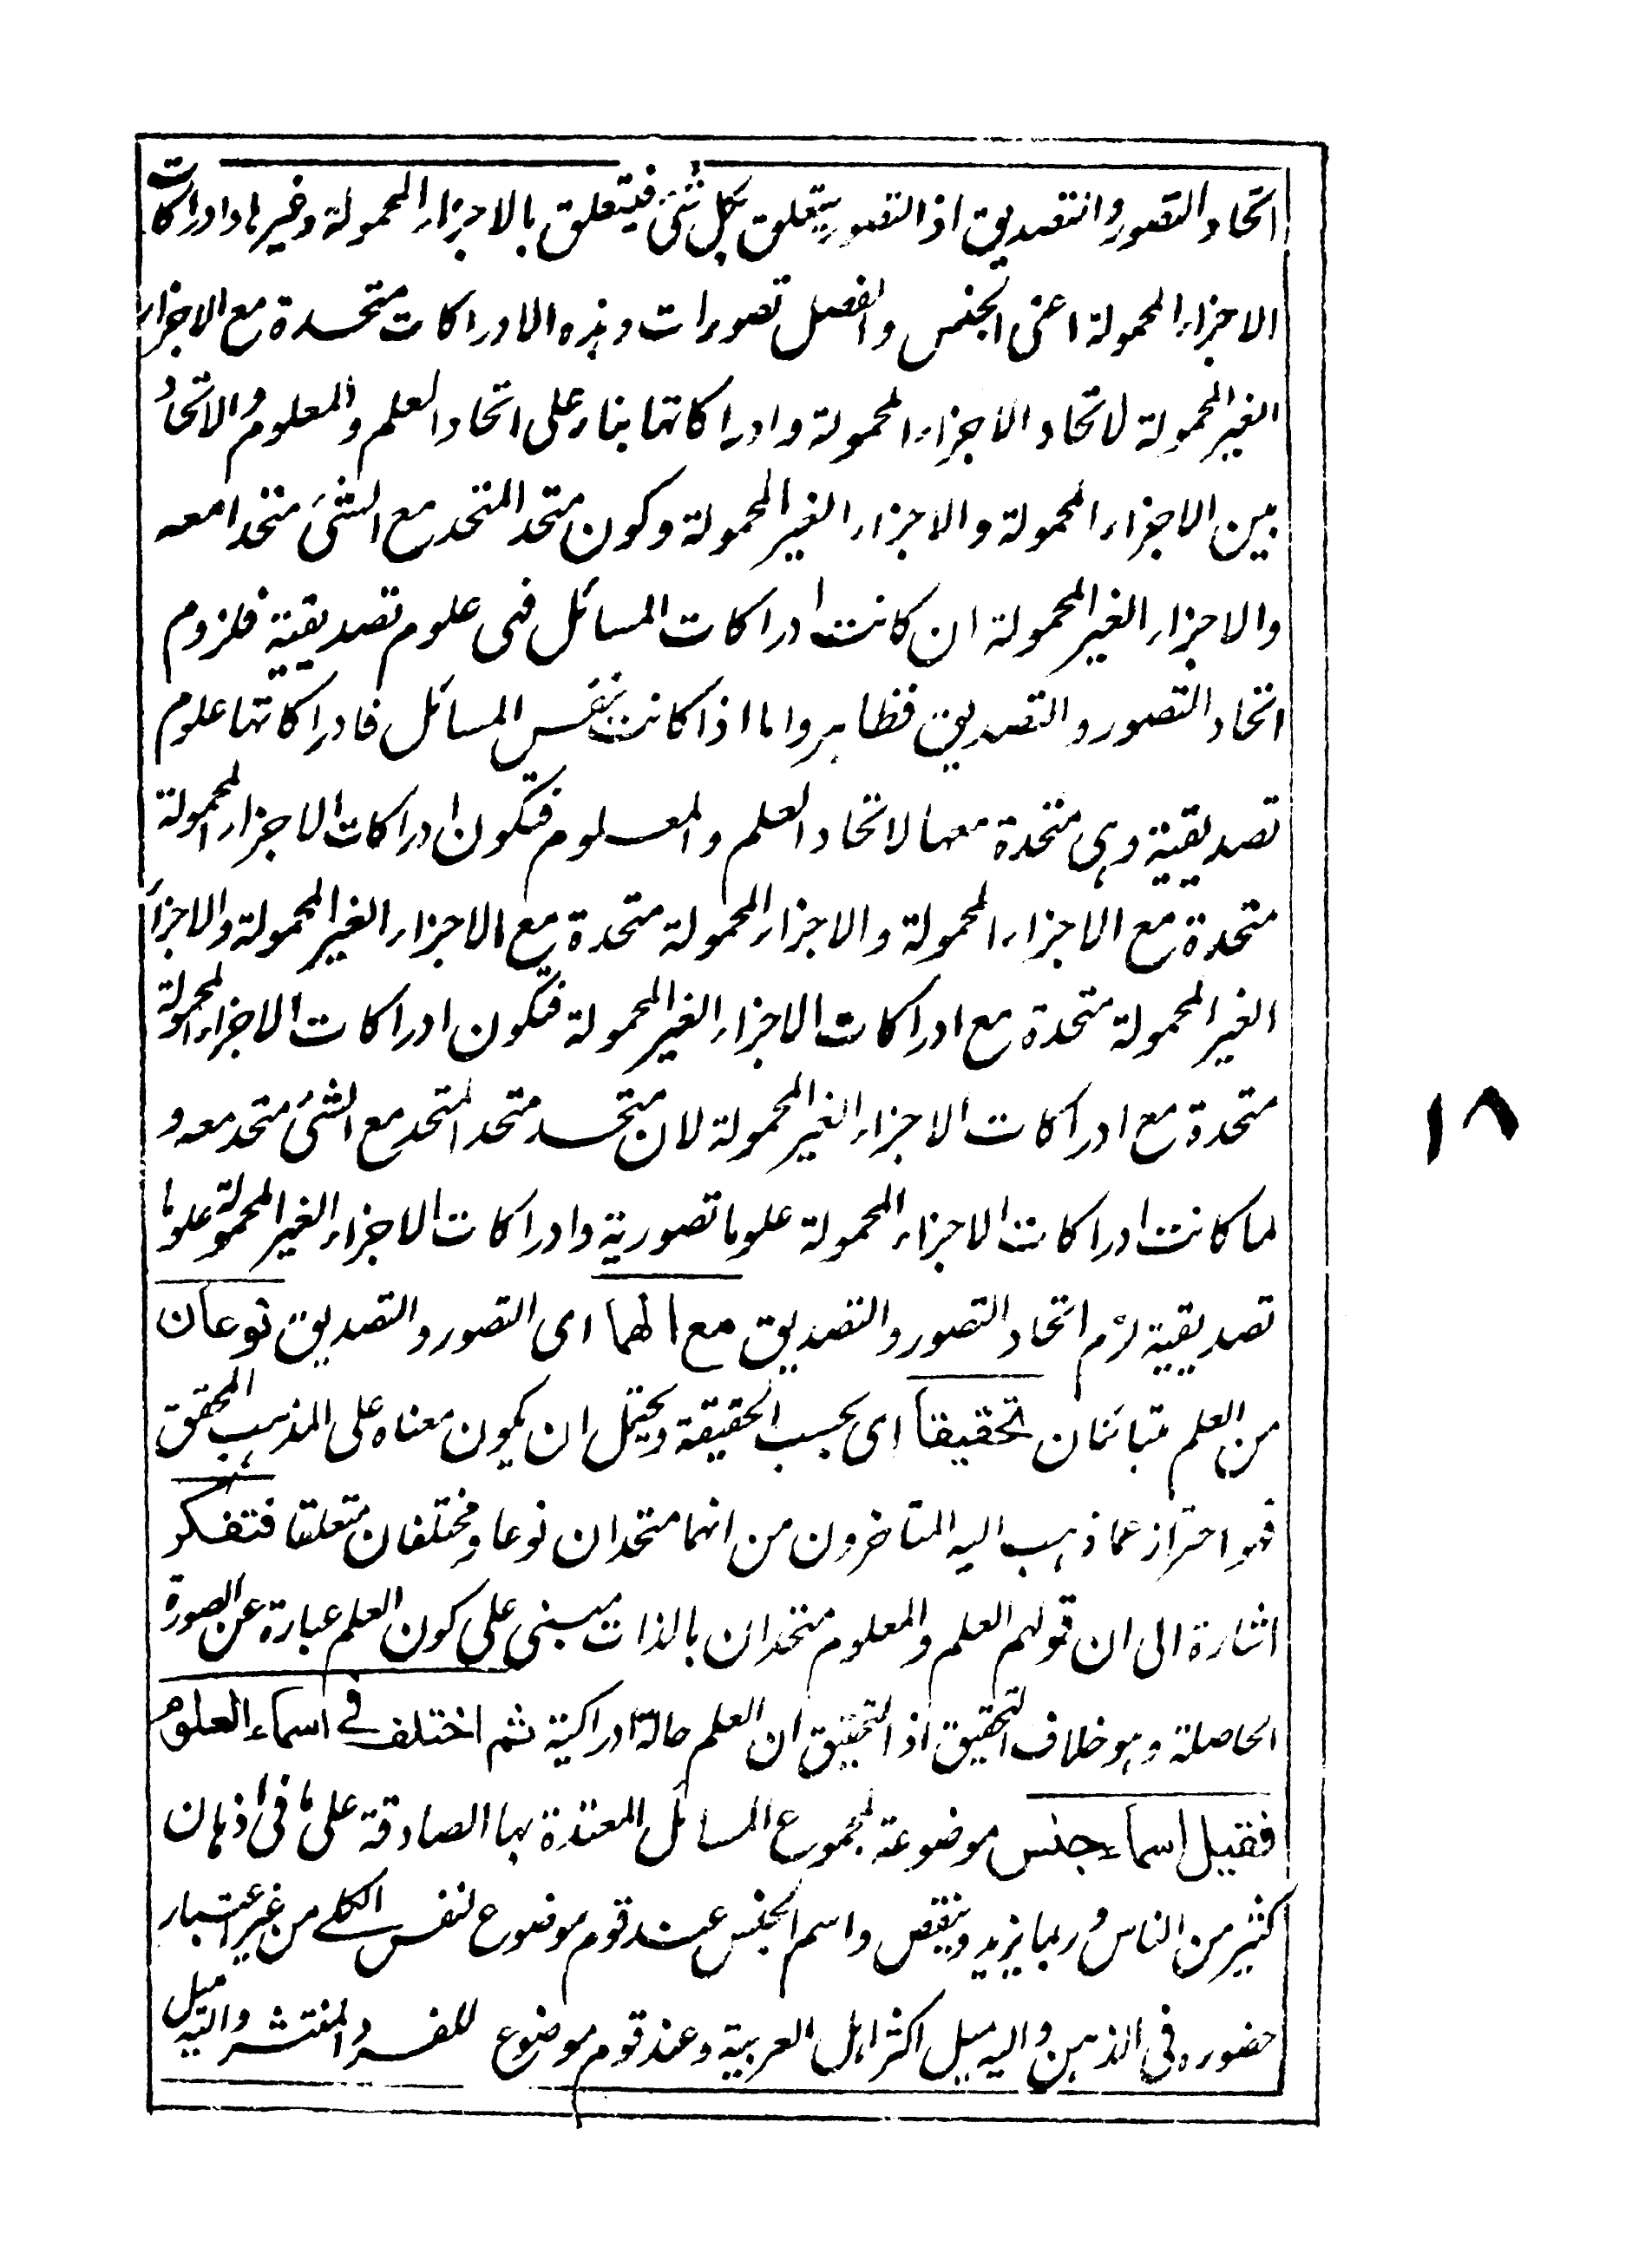 اتحاد التصور والتصديق اذ التصور يتعلق بكل شئ فيتعلق بالاجزاء المحمولة وغيرها وادراكات
الاجزاء المحمولة اعنى الجنس والفصل تصورات وهذه الادراكات متحدة مع الاجزاء
الغير المحمولة لاتحاد الاجزاء المحمولة وادراكاتها بناء على اتحاد العلم والمعلوم والاتحاد
بين الاجزاء المحمولة والاجزاء الغير المحمولة وكون متحد المتحد مع الشئ متحدا معه
والاجزاء الغير المحمولة ان كانت ادراكات المسائل فهى علوم تصديقية فلزوم
اتحاد التصور والتصديق فظاهر واما اذا كانت نفس المسائل فادراكاتها علوم
تصديقية وهى متحدة معها لاتحاد العلم والمعلوم فتكون ادراكات الاجزاء المحمولة
متحدة مع الاجزاء المحمولة والاجزاء المحمولة متحدة مع الاجزاء الغير المحمولة والاجزاء
الغير المحمولة متحدة مع ادراكات الاجزاء الغير المحمولة فتكون ادراكات الاجزاء المحمولة
متحدة مع ادراكات الاجزاء الغير المحمولة لان متحد متحد المتحد مع الشئ متحد معه و
لما كانت ادراكات الاجزاء المحمولة علوما تصورية وادراكات الاجزاء الغير المحمولة علوما
تصديقية لزم اتحاد التصور والتصديق مع انهما اى التصور والتصديق نوعان
من العلم متبائنان تحقيقا اى بحسب الحقيقة ويحتمل ان يكون معناه على المذهب المحقق
فهو احتراز عما ذهب اليه المتاخرون من انهما متحدان نوعا ومختلفان متعلقا فتفكر
اشارة الى ان قولهم العلم والمعلوم متحدان بالذات مبنى على كون العلم عبارة عن الصورة
الحاصلة وهو خلاف التحقيق اذ التحقيق ان العلم حالة ادراكية ثم اختلف فى اسماء العلوم
فقيل اسماء جنس موضوعة لمجموع المسائل المعتدة بها الصادقة على ما فى اذهان
كثير من الناس وربما يزيد وينقص واسم الجنس عند قوم موضوع لنفس الكلى من غير اعتبار
حضوره فى الذهن واليه ميل اكثر اهل العربية وعند قوم موضوع للفرد المنتشر واليه ميل
١٨